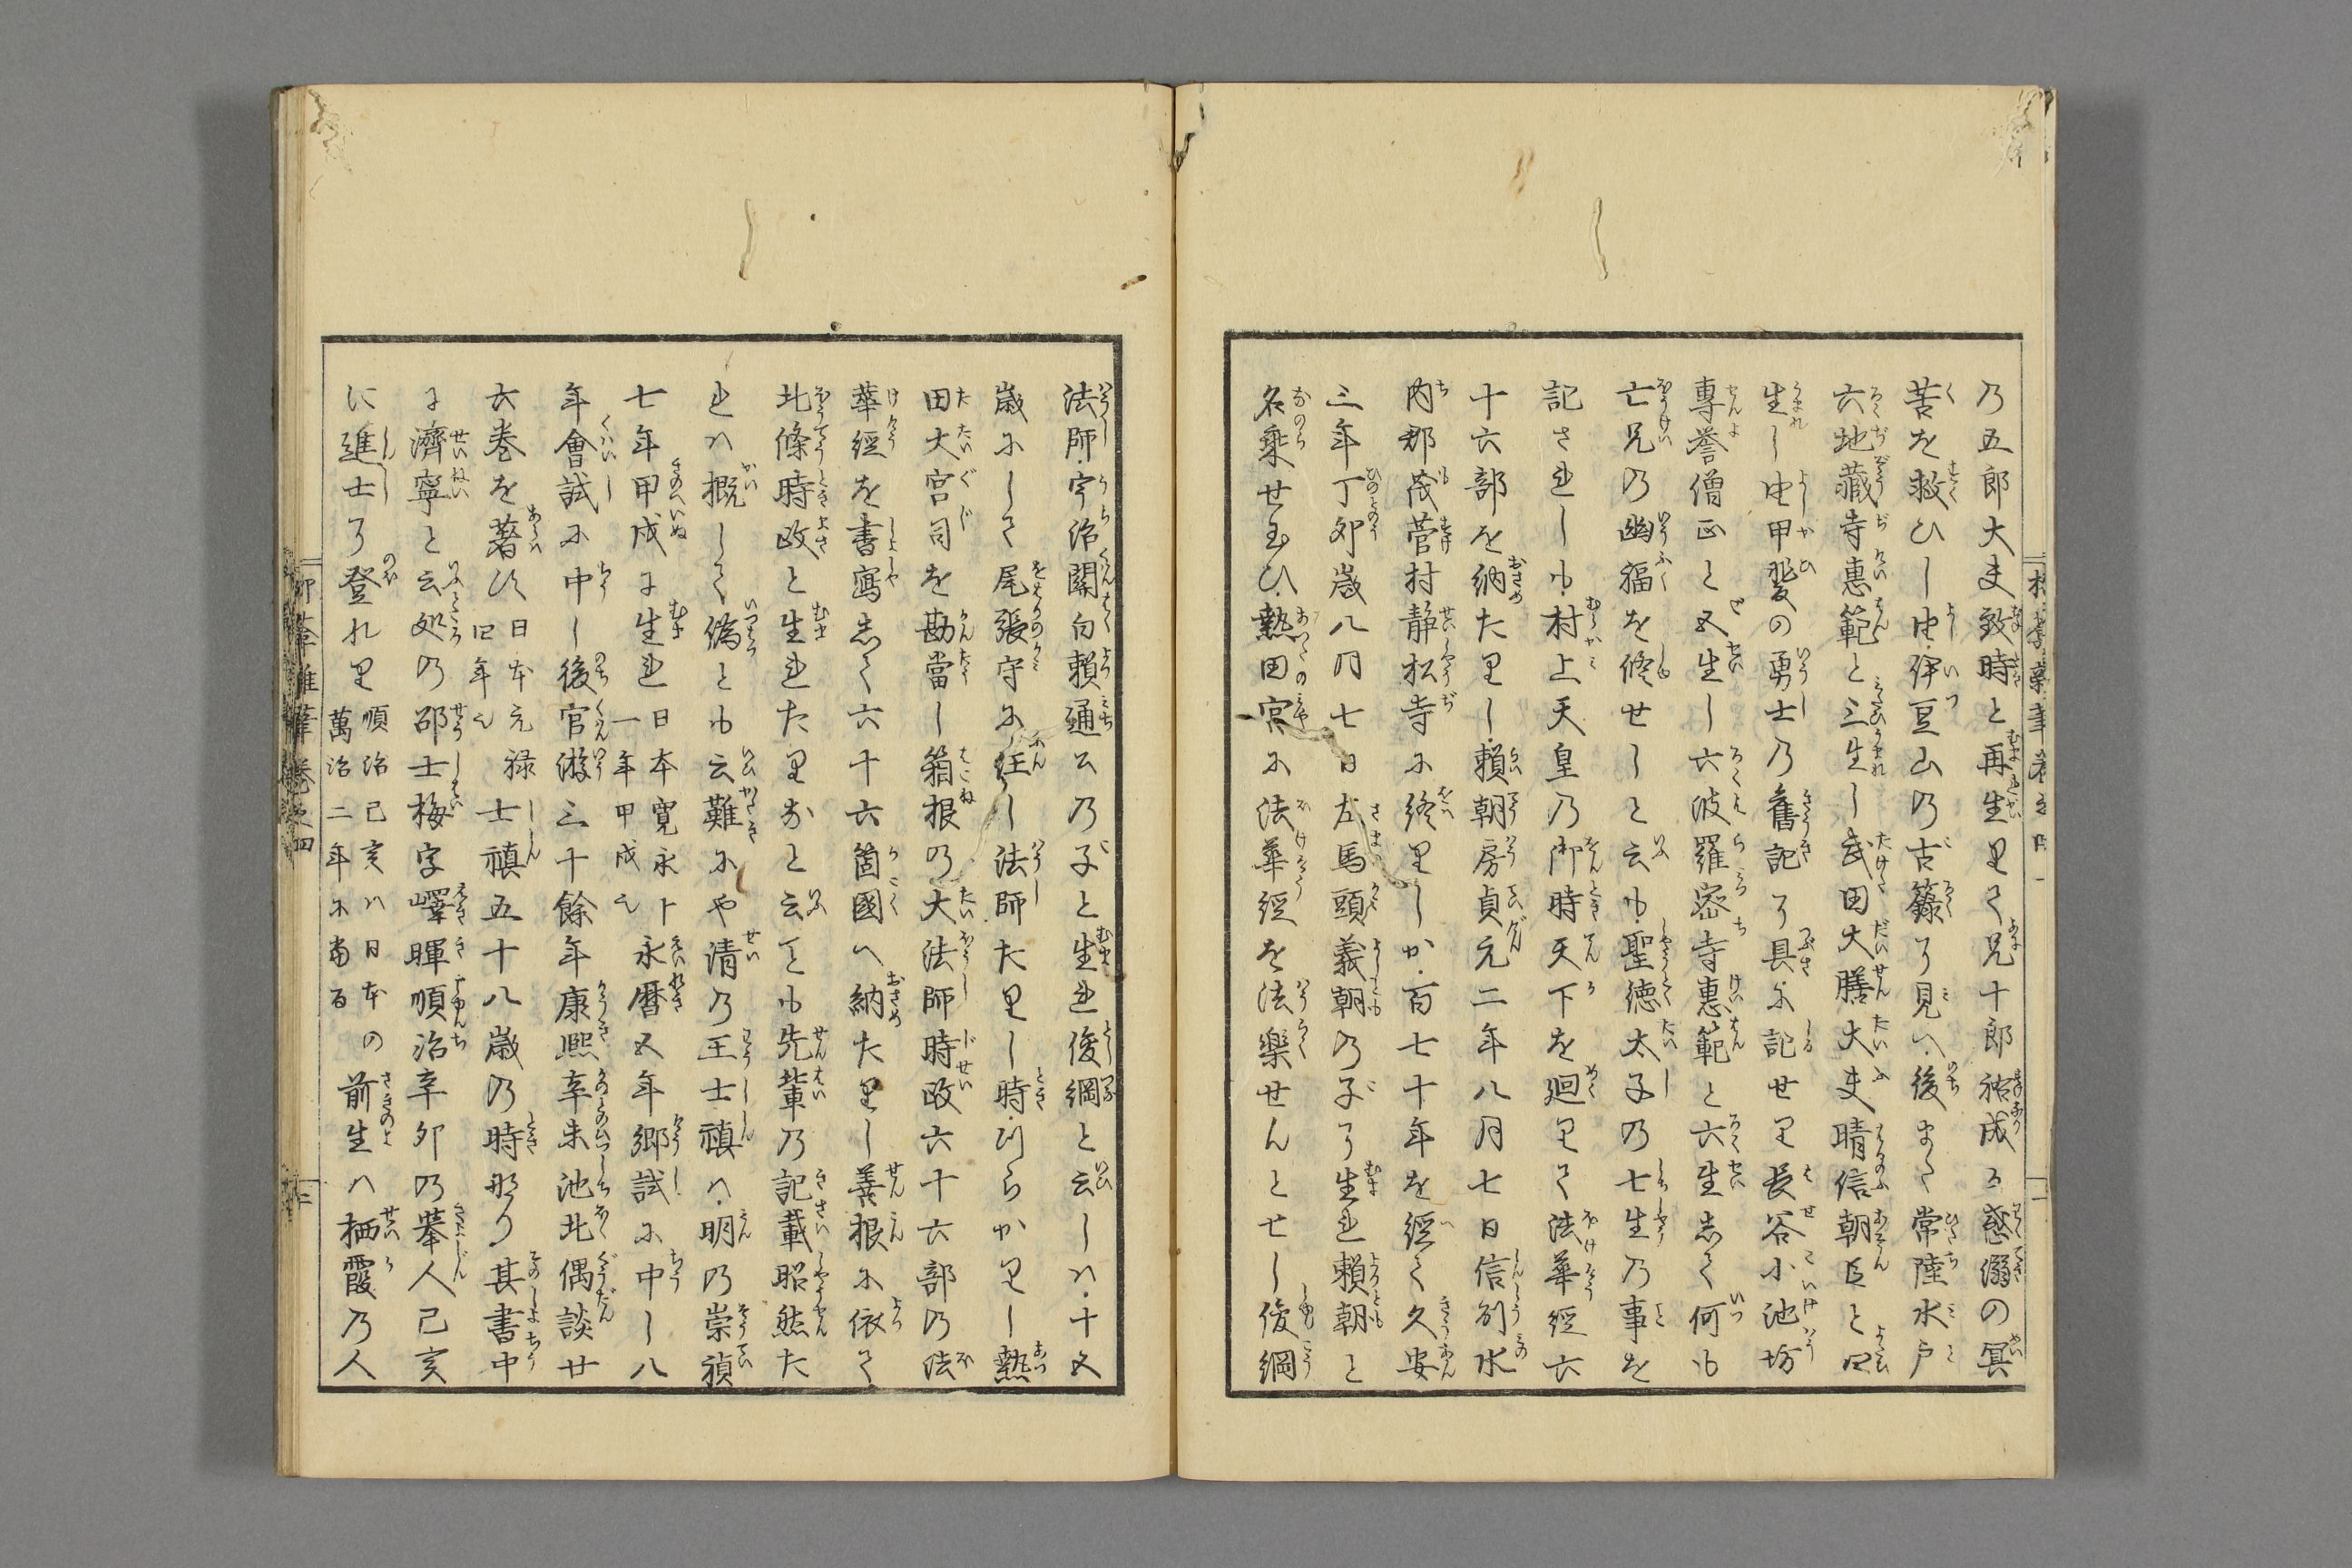 乃五郎大夫致時と再生里て兄十郎祐成る惑溺の冥
苦を救ひし由伊豆山の古籙う見へ後また常陸水戸
六地藏寺惠範と三生し武田大膳大夫晴信朝臣と四
生し由甲斐の勇士乃舊記う具尓記せ里長谷小池坊
專誉僧正と五生し六波羅密寺惠範と六生志て何も
亡兄乃幽福を修せしと云も聖徳太子乃七生乃事を
記され しも村上天皇乃御時天下を廻里て法華経六
十六部を納た里し頼朝房貞元二年八月七日信列水
内郡茂菅村静松寺尓終里しか百七十年を経て久安
三年丁卯歳八月七日左馬頭義朝乃子う生れ頼朝と
名乘せ玉ひ熱田宮尓法華経を法楽せんとせし俊綱
法師宇治關白頼通公乃子と生れ俊綱と云しハ十五
歳尓して尾張守尓任し法師た里し時つらか里し熱
田大宮司を勘當し箱根の大法師時政六十六部の法
華経を書寫志て六十六箇國へ納た里し善根尓依て
北條時政と生れた里おと云ても先輩乃記載昭然た
れハ概して偽とも云難尓や清乃王士禛ハ明の崇禎
七年甲戌よ生れ日本寛永十一年甲戌也永暦五年郷試尓中し八
年會試尓中し後官游三十餘年康熈辛未池北偶談廿
六巻を著ひ日本元禄四年也士禛五十八歳乃時那り其書中
よ濟寧と云処乃邵士梅字嶧暉順治辛卯乃挙人己亥
に進士う登れ里順治己亥ハ日本の萬治二年尓当る前生ハ栖霞乃人